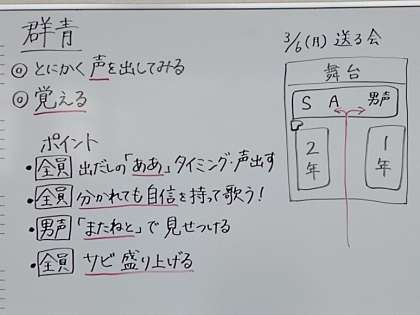 群青
◎とにかく声を出してみる
◎覚える
ポイント
・全員 出だしの「ああ」タイミング・声出す
・全員 分かれても自信を持って歌う!
・男声「またねと」で見せつける
・全員 サビ盛り上げる
3/6(月) 送る会
舞台
S A 男声
2年 1年